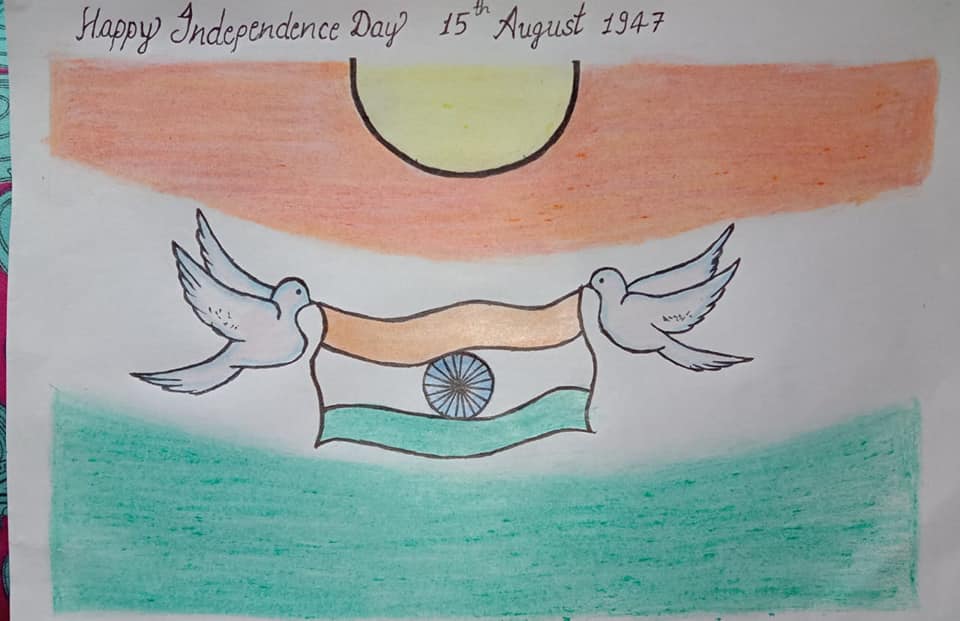 Happy Independence Day 15th August 1947